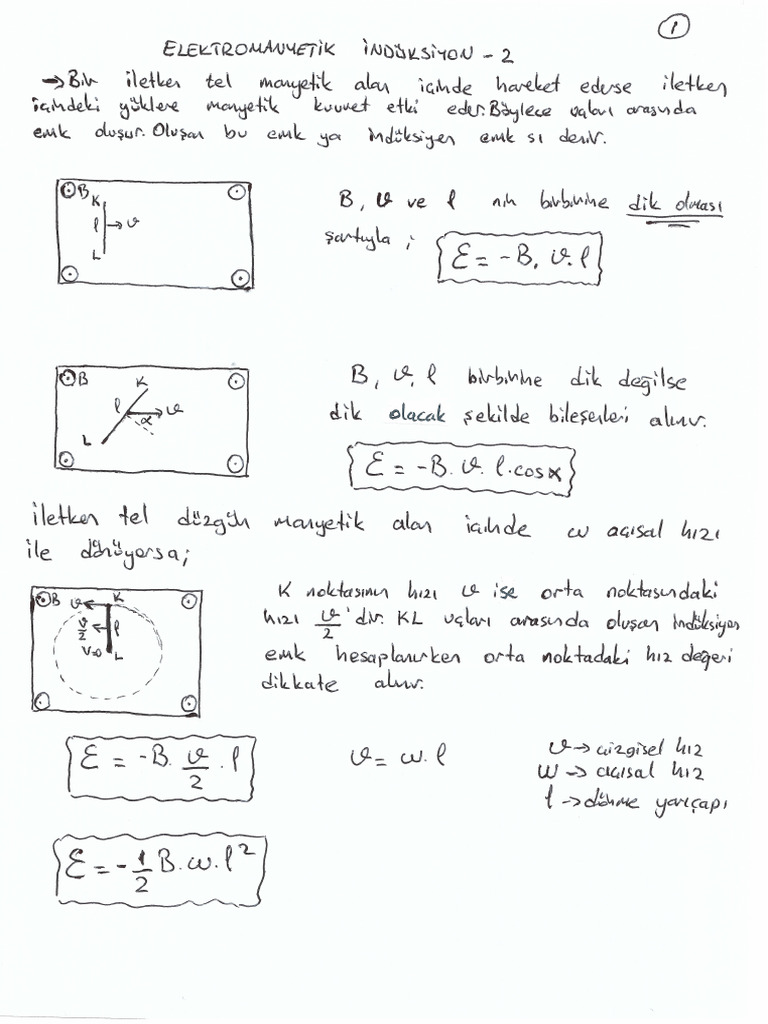 1
ELEKTROMANYETİK İNDÜKSİYON - 2
→ Bir iletken tel manyetik alan içinde hareket ederse iletken
içindeki yüklere manyetik kuvvet etki eder. Böylece uçları arasında
emk oluşur. Oluşan bu emk ya indüksiyon emk sı denir.
B K
l → υ
L
B, υ ve l nin birbirine dik olması
şartıyla;
ε = -B. υ. l
B K
l υ
α
L
B, υ, l birbirine dik değilse
dik olacak şekilde bileşenleri alınır.
ε = -B. υ. l. cosα
iletken tel düzgün manyetik alan içinde w açısal hızı
ile dönüyorsa;
B υ K
υ/2 l
V=0 L
K noktasının hızı υ ise orta noktasındaki
hızı υ/2 'dir. KL uçları arasında oluşan indüksiyon
emk hesaplanırken orta noktadaki hız değeri
dikkate alınır.
ε = -B. υ/2 . l
υ = w. l
υ → çizgisel hız
w → açısal hız
l → dönme yarıçapı
ε = -1/2 B. w. l²